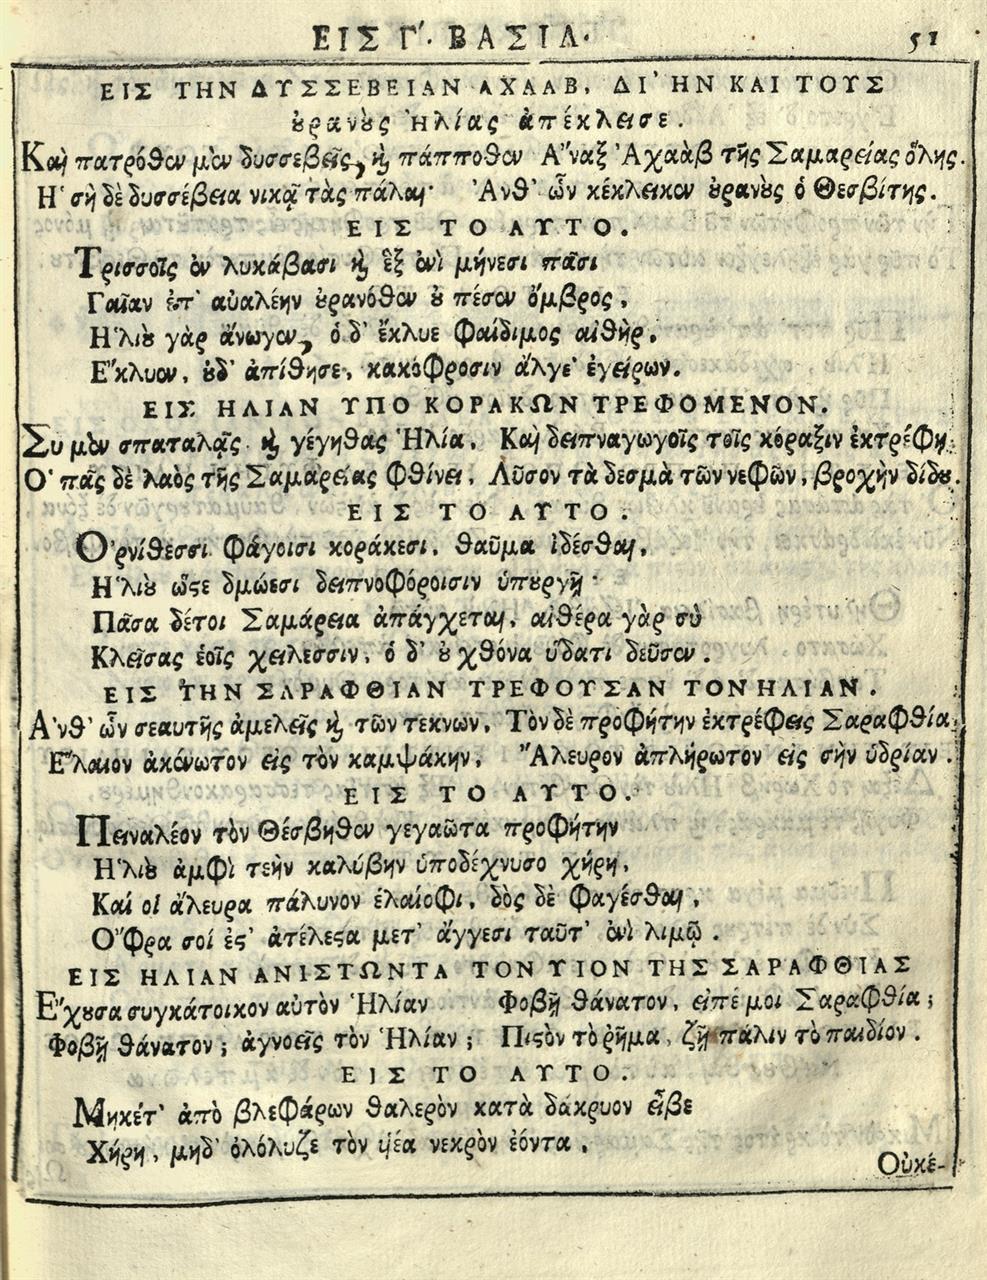 ΕΙΣ Γ΄. ΒΑΣΙΛ. 51
ΕΙΣ ΤΗΝ ΔΥΣΣΕΒΕΙΑΝ ΑΧΑΑΒ, ΔΙ' ΗΝ ΚΑΙ ΤΟΥΣ
οὐρανοὺς Ἠλίας ἀπέκλεισε.
Καὶ πατρόθεν μὲν δυσσεβεῖς, καὶ πάπποθεν Ἄναξ Ἀχαὰβ τῆς Σαμαρείας ὅλης.
Ἡ σὴ δὲ δυσσέβεια νικᾷ τὰς πάλαι· Ἀνθ' ὧν κέκλεικεν οὐρανοὺς ὁ Θεσβίτης.
ΕΙΣ ΤΟ ΑΥΤΟ.
Τρισσοῖς ἐν λυκάβασι καὶ ἓξ ἐνὶ μήνεσι πᾶσι
Γαῖαν ἐπ' αὐαλέην οὐρανόθεν οὐ πέσεν ὄμβρος,
Ἠλιοὺ γὰρ ἄνωγεν, ὁ δ' ἔκλυε Φαίδιμος αἰθὴρ,
Ἔκλυεν, οὐδ' ἀπίθησε, κακόφροσιν ἄλγε' ἐγείρων.
ΕΙΣ ΗΛΙΑΝ ΥΠΟ ΚΟΡΑΚΩΝ ΤΡΕΦΟΜΕΝΟΝ.
Σὺ μὲν σπαταλᾷς καὶ γέγηθας Ἠλία, Καὶ δειπναγωγοῖς τοῖς κόραξιν ἐκτρέφῃ.
Ὁ πᾶς δὲ λαὸς τῆς Σαμαρείας φθίνει, Λῦσον τὰ δεσμὰ τῶν νεφῶν, βροχὴν δίδου.
ΕΙΣ ΤΟ ΑΥΤΟ.
Ὀρνίθεσσι φάγοισι κοράκεσι, θαῦμα ἰδέσθαι,
Ἠλιοὺ ὥστε δμώεσι δειπνοφόροισιν ὑπουργῇ·
Πᾶσα δέτοι Σαμάρεια ἀπάγχεται, αἰθέρα γὰρ σὺ
Κλεῖσας ἑοῖς χείλεσσιν, ὁ δ' οὐ χθόνα ὕδατι δεῦσεν.
ΕΙΣ ΤΗΝ ΣΑΡΑΦΘΙΑΝ ΤΡΕΦΟΥΣΑΝ ΤΟΝ ΗΛΙΑΝ.
Ἀνθ' ὧν σεαυτῆς ἀμελεῖς καὶ τῶν τεκνων, Τὸν δὲ προφήτην ἐκτρέφεις Σαραφθία,
Ἔλαιον ἀκένωτον εἰς τὸν καμψάκην, Ἄλευρον ἀπλήρωτον εἰς σὴν ὑδρίαν.
ΕΙΣ ΤΟ ΑΥΤΟ.
Πειναλέον τὸν Θέσβηθεν γεγαῶτα προφήτην
Ἠλιοὺ ἀμφὶ τεὴν καλύβην ὑποδέχνυσο χήρη,
Καί οἱ ἄλευρα πάλυνον ἐλαίοφι, δὸς δὲ φαγέσθαι,
Ὄφρα σοί ἐς' ἀτέλεστα μετ' ἄγγεσι ταῦτ' ἐνὶ λιμῷ.
ΕΙΣ ΗΛΙΑΝ ΑΝΙΣΤΩΝΤΑ ΤΟΝ ΥΙΟΝ ΤΗΣ ΣΑΡΑΦΘΙΑΣ
Ἔχουσα συγκάτοικον αὐτὸν Ἠλίαν Φοβῇ θάνατον, εἰπέ μοι Σαραφθία;
Φοβῇ θάνατον; ἀγνοεῖς τὸν Ἠλίαν; Πιστὸν τὸ ῥῆμα, ζῇ πάλιν τὸ παιδίον.
ΕΙΣ ΤΟ ΑΥΤΟ.
Μηκέτ' ἀπὸ βλεφάρων θαλερὸν κατὰ δάκρυον εἶβε
Χήρη, μηδ' ὀλόλυζε τὸν υἱέα νεκρὸν ἐόντα,
Οὐκέ-